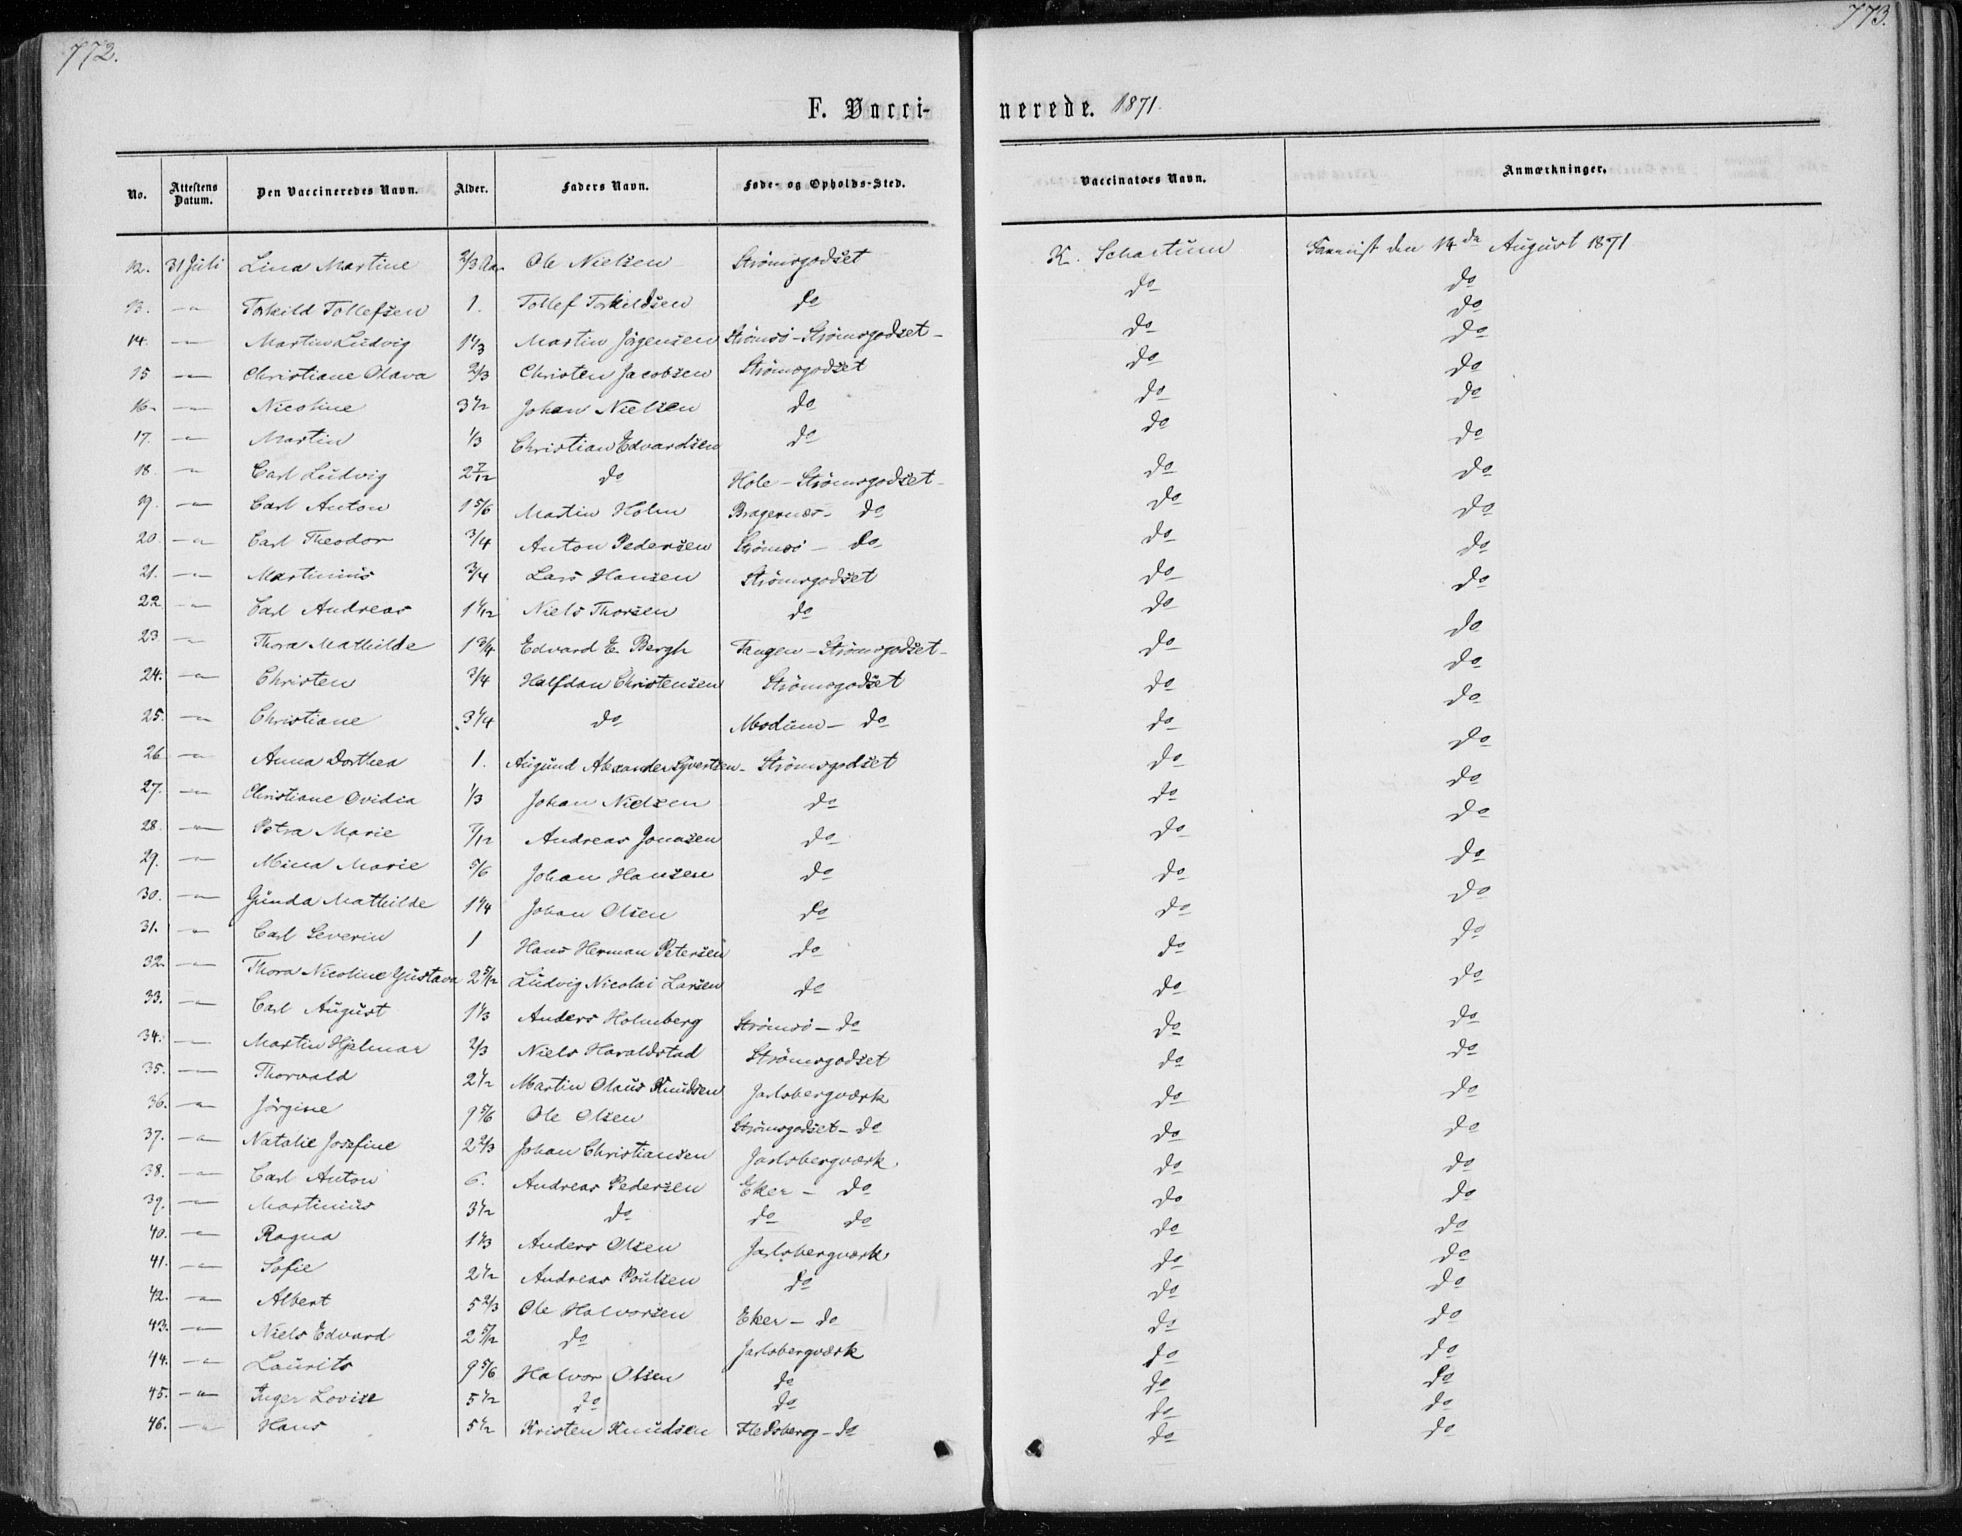 772.
773.
F. Vacci- nerede. 1871.
No. | Attestens Datum. | Den Vaccineredes Navn. | Alder. | Faders Navn. | Føde- og Opholds-Sted. | Vaccinators Navn. | Anmærkninger.
12. | 31 Juli | Lina Martine | 2/3 Aar | Ole Nielsen | Strömsgodset | K. Schartum | den 14de August 1871
13. | — | Torkild Tollefsen | 1. | Tollef Torkildsen | do | do | do
14. | — | Martin Ludvig | 1 1/3 | Martin Jörgensen | Strömsö-Strömsgodset- | do | do
15 | — | Christiane Olava | 2/3 | Christen Jacobsen | Strömsgodset | do | do
16. | — | Nicoline | 3 1/2 | Johan Nielsen | do | do | do
17. | — | Martin | 1/3 | Christian Edvardsen | do | do | do
18. | — | Carl Ludvig | 2 7/12 | do | Hole - Strömsgodset- | do | do
19. | — | Carl Anton | 1 5/6 | Martin Holm | Bragernæs- do | do | do
20 | — | Carl Theodor | 3/4 | Anton Pedersen | Strömsö - do | do | do
21. | — | Martinius | 3/4 | Lars Hansen | Strömsgodset | do | do
22 | — | Carl Andreas | 1 1/12 | Niels Thorsen | do | do | do
23 | — | Thora Mathilde | 1 3/4 | Edvard E. Bergh | Tangen - Strömsgodset- | do | do
24. | — | Christen | 3/4 | Halfdan Christensen | Strömsgodset | do | do
25. | — | Christiane | 3 1/4 | do | Modum - do | do | do
26 | — | Anna Dorthea | 1. | Augund Alexander Syvertsen- | Strömsgodset | do | do
27. | — | Christiane Ovidia | 1/3 | Johan Nielsen | do | do | do
28. | — | Petra Marie | 7/12 | Andreas Jonasen | do | do | do
29. | — | Mina Marie | 5/6 | Johan Hansen | do | do | do
30. | — | Gunda Mathilde | 1 1/4 | Johan Olsen | do | do | do
31. | — | Carl Severin | 1 | Hans Herman Petersen | do | do | do
32. | — | Thora Nicoline Gustava | 2 5/12 | Ludvig Nicolai Larsen | do | do | do
33. | — | Carl August | 1 1/3 | Anders Holmberg | Strömsö - do | do | do
34. | — | Martin Hjalmar | 2/3 | Niels Haraldstad | Strömsgodset | do | do
35. | — | Thorvald | 2 1/2 | Martin Olaus Knudsen | Jarlsbergværk | do | do
36. | — | Jörgine | 9 5/6 | Ole Olsen | Strömsgodset - do | do | do
37. | — | Natalie Josefine | 2 2/3 | Johan Christiansen | Jarlsbergværk | do | do
38. | — | Carl Anton | 6. | Andreas Pedersen | Eker - do | do | do
39. | — | Martinius | 3 1/2 | do | do do | do | do
40. | — | Ragna | 1 1/3 | Anders Olsen | Jarlsbergværk | do | do
41. | — | Sofie | 2 1/2 | Andreas Poulsen | do | do | do
42. | — | Albert | 5 2/3 | Ole Halvorsen | Eker - do | do | do
43. | — | Niels Edvard | 2 5/12 | do | Jarlsbergværk | do | do
44. | — | Laurits | 9 5/6 | Halvor Olsen | do | do | do
45. | — | Inger Lovise | 5 1/2 | do | do | do | do
46. | — | Hans | 5 1/2 | Kristen Knudsen | Fledsberg - do | do | do